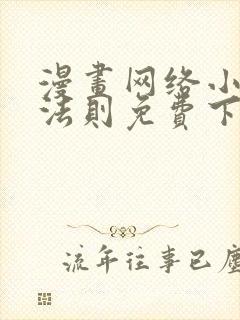 漫畫网络小
法則免費下
流年往事已塵